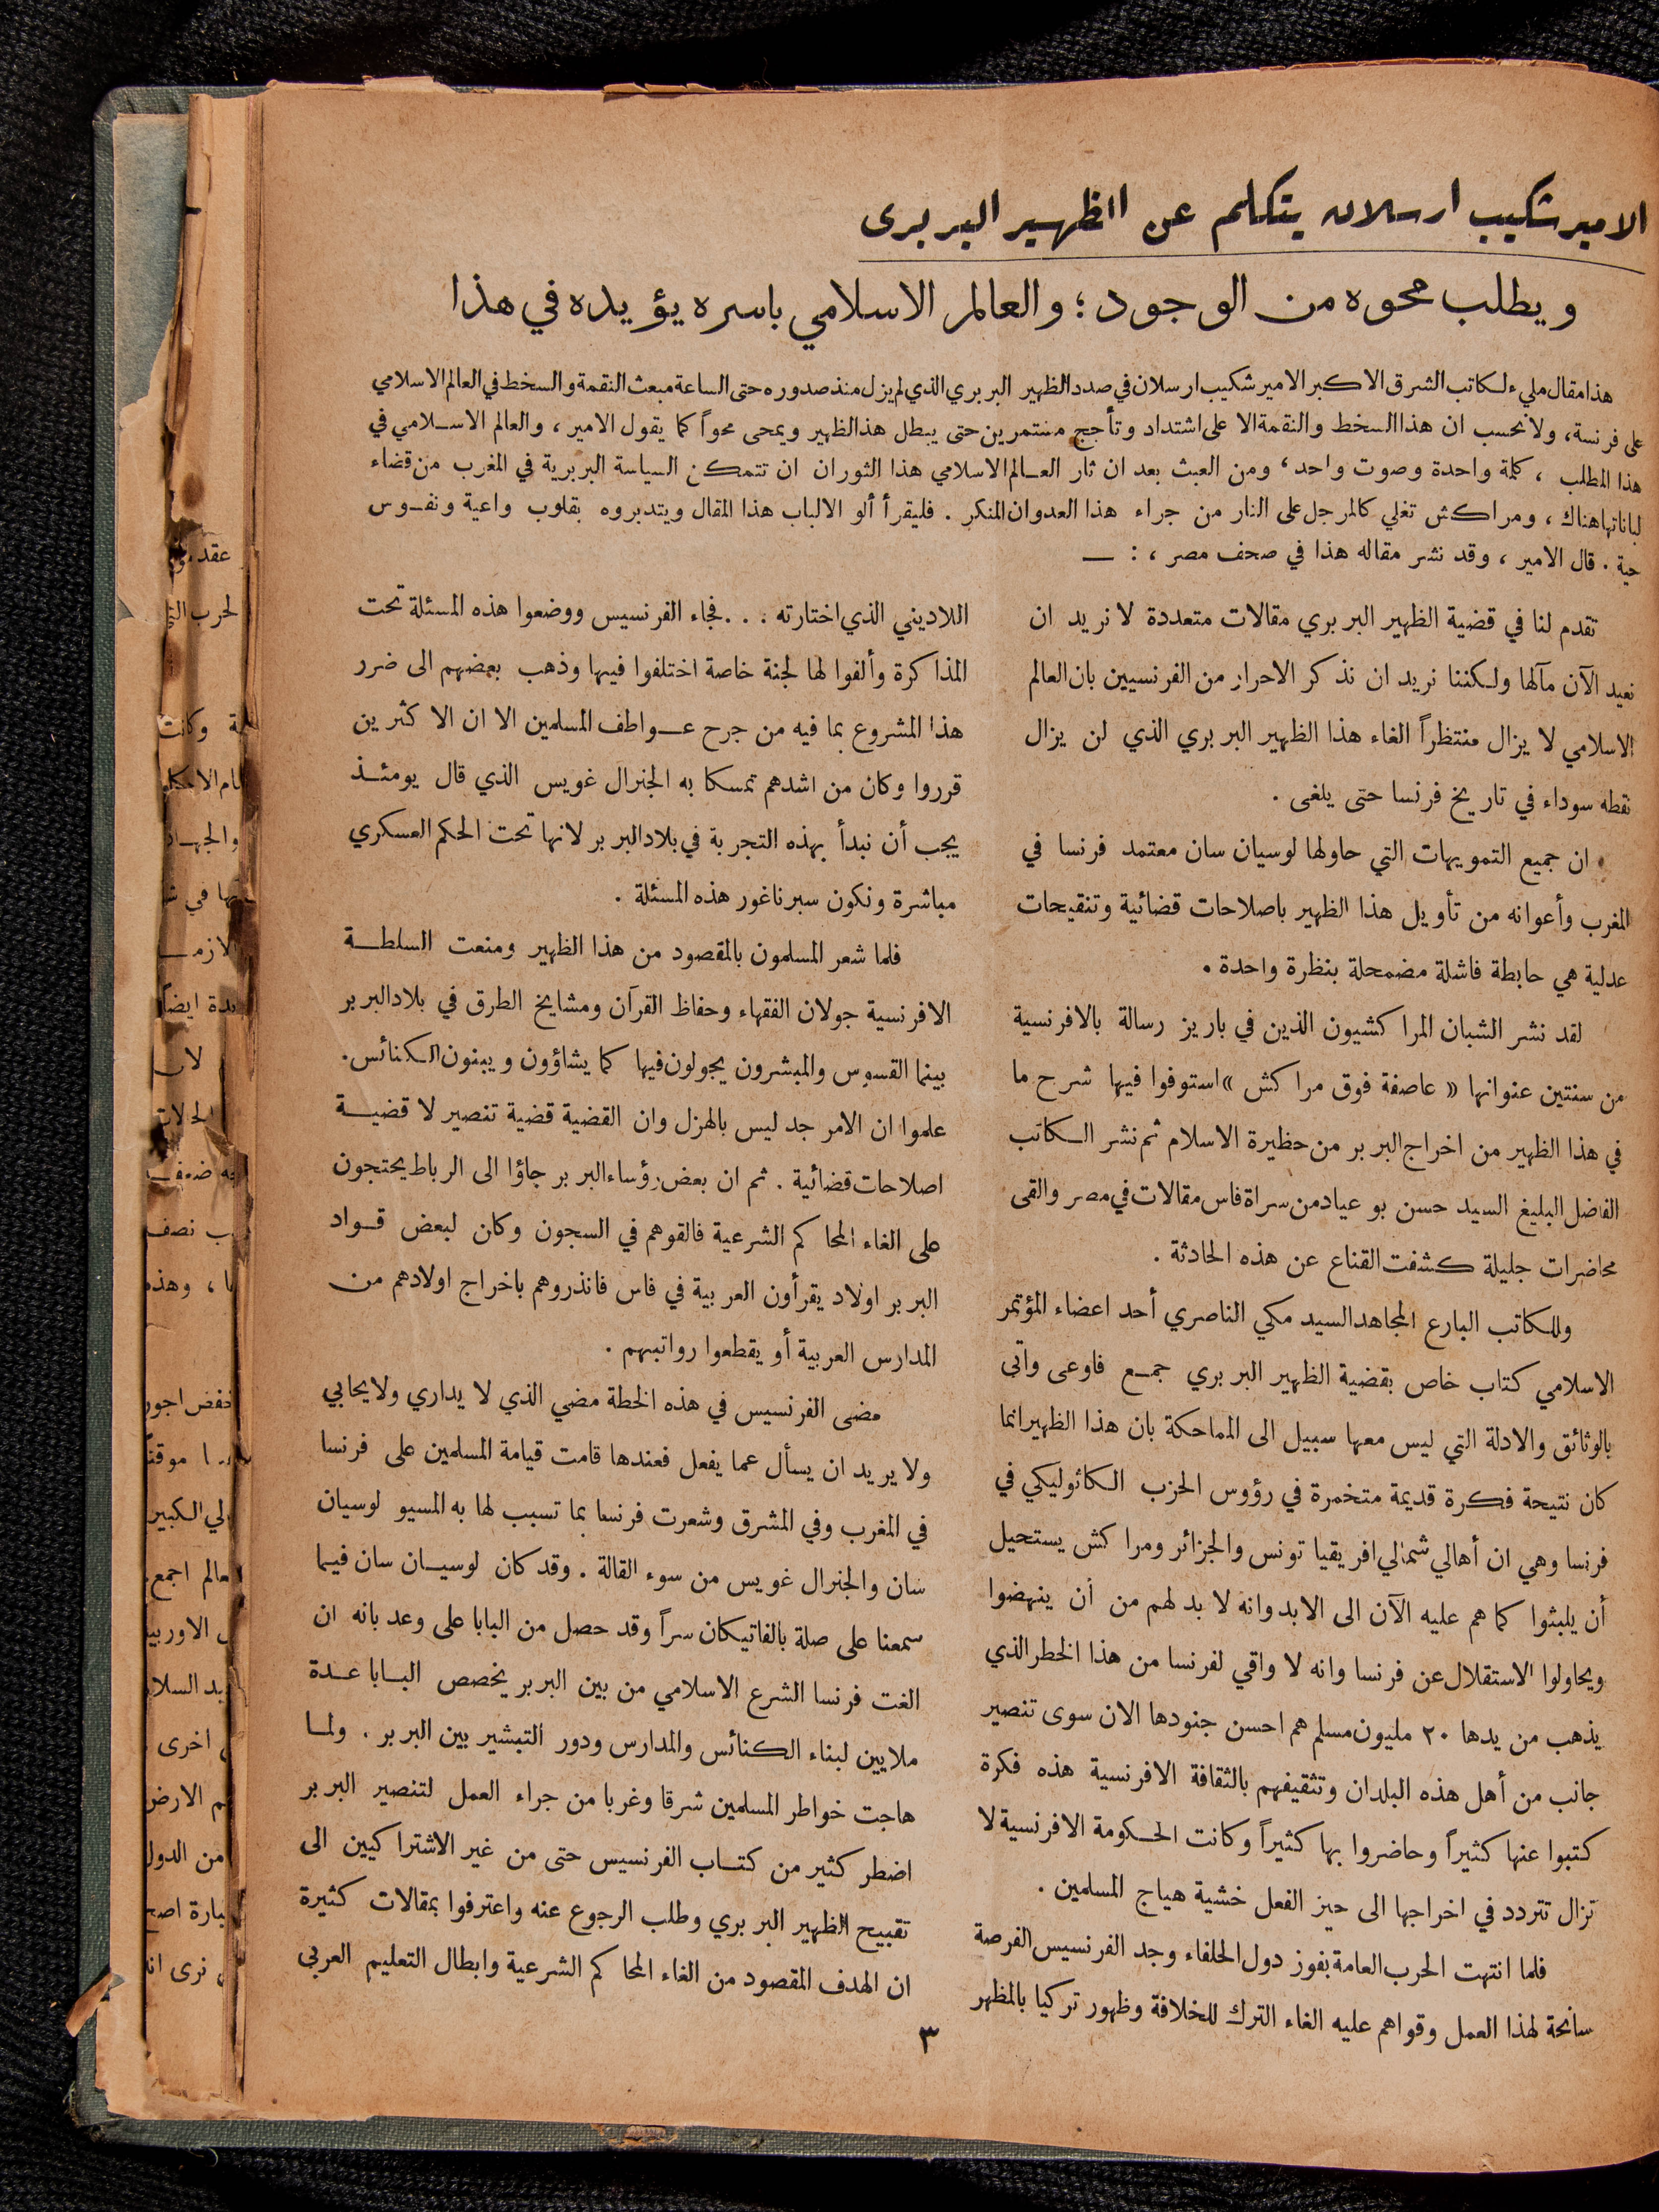 الامير شكيب ارسلان يتكلم عن الظهير البربرى
ويطلب محوه من الوجود ؛ والعالم الاسلامي باسره يؤيده في هذا
هذا مقال مليء لكاتب الشرق الاكبر الامير شكيب ارسلان في صدد الظهير البربري الذي لم يزل منذ صدوره حتى الساعة مبعث النقمة والسخط في العالم الاسلامي
على فرنسة، ولا نحسب ان هذا السخط والنقمة الا على اشتداد وتأجج مستمرين حتى يبطل هذ الظهير ويمحى محواً كما يقول الامير ، والعالم الاسلامي في
هذا المطلب ، كلمة واحدة وصوت واحد ، ومن العبث بعد ان ثار العالم الاسلامي هذا الثوران ان تتمكن السياسة البربرية في المغرب من قضاء
لباناتها هناك ، ومراكش تغلي كالمرجل على النار من جراء هذا العدوان المنكر . فليقرأ ألو الالباب هذا المقال ويتدبروه بقلوب واعية ونفوس
حية . قال الامير ، وقد نشر مقاله هذا في صحف مصر ، : —
تقدم لنا في قضية الظهير البربري مقالات متعددة لا نريد ان
نعيد الآن مآلها ولكننا نريد ان نذكر الاحرار من الفرنسيين بان العالم
الاسلامي لا يزال منتظراً الغاء هذا الظهير البربري الذي لن يزال
نقطه سوداء في تاريخ فرنسا حتى يلغى .
ان جميع التمويهات التي حاولها لوسيان سان معتمد فرنسا في
المغرب وأعوانه من تأويل هذا الظهير باصلاحات قضائية وتنقيحات
عدلية هي حابطة فاشلة مضمحلة بنظرة واحدة .
لقد نشر الشبان المراكشيون الذين في باريز رسالة بالافرنسية
من سنتين عنوانها « عاصفة فوق مراكش » استوفوا فيها شرح ما
في هذا الظهير من اخراج البربر من حظيرة الاسلام ثم نشر الكاتب
الفاضل البليغ السيد حسن بو عياد من سراة فاس مقالات في مصر والقى
محاضرات جليلة كشفت القناع عن هذه الحادثة .
وللكاتب البارع المجاهد السيد مكي الناصري أحد اعضاء المؤتمر
الاسلامي كتاب خاص بقضية الظهير البربري جمع فاوعى واتى
بالوثائق والادلة التي ليس معها سبيل الى المماحكة بان هذا الظهير انما
كان نتيجة فكرة قديمة متخمرة في رؤوس الحزب الكاثوليكي في
فرنسا وهي ان أهالي شمالي افريقيا تونس والجزائر ومراكش يستحيل
أن يلبثوا كما هم عليه الآن الى الابد وانه لا بد لهم من أن ينهضوا
ويحاولوا الاستقلال عن فرنسا وانه لا واقي لفرنسا من هذا الخطر الذي
يذهب من يدها ٢٠ مليون مسلم هم احسن جنودها الان سوى تنصير
جانب من أهل هذه البلدان وتثقيفهم بالثقافة الافرنسية هذه فكرة
كتبوا عنها كثيراً وحاضروا بها كثيراً وكانت الحكومة الافرنسية لا
تزال تتردد في اخراجها الى حيز الفعل خشية هياج المسلمين .
فلما انتهت الحرب العامة بفوز دول الحلفاء وجد الفرنسيس الفرصة
سانحة لهذا العمل وقواهم عليه الغاء الترك للخلافة وظهور تركيا بالمظهر
اللاديني الذي اختارته . . . فجاء الفرنسيس ووضعوا هذه المسئلة تحت
المذاكرة وألفوا لها لجنة خاصة اختلفوا فيها وذهب بعضهم الى ضرر
هذا المشروع بما فيه من جرح عواطف المسلمين الا ان الاكثرين
قرروا وكان من اشدهم تمسكا به الجنرال غويس الذي قال يومئذ
يجب أن نبدأ بهذه التجربة في بلاد البربر لانها تحت الحكم العسكري
مباشرة ونكون سبرنا غور هذه المسئلة .
فلما شعر المسلمون بالمقصود من هذا الظهير ومنعت السلطة
الافرنسية جولان الفقهاء وحفاظ القرآن ومشايخ الطرق في بلاد البربر
بينما القسوس والمبشرون يجولون فيها كما يشاؤون ويبنون الكنائس.
علموا ان الامر جد ليس بالهزل وان القضية قضية تنصير لا قضية
اصلاحات قضائية . ثم ان بعض رؤساء البربر جاؤا الى الرباط يحتجون
على الغاء المحاكم الشرعية فالقوهم في السجون وكان لبعض قواد
البربر اولاد يقرأون العربية في فاس فانذروهم باخراج اولادهم من
المدارس العربية أو يقطعوا رواتبهم .
مضى الفرنسيس في هذه الخطة مضي الذي لا يداري ولا يحابي
ولا يريد ان يسأل عما يفعل فعندها قامت قيامة المسلمين على فرنسا
في المغرب وفي المشرق وشعرت فرنسا بما تسبب لها به المسيو لوسيان
سان والجنرال غويس من سوء القالة . وقد كان لوسيان سان فيما
سمعنا على صلة بالفاتيكان سراً وقد حصل من البابا على وعد بانه ان
الغت فرنسا الشرع الاسلامي من بين البربر يخصص البابا عدة
ملايين لبناء الكنائس والمدارس ودور التبشير بين البربر . ولما
هاجت خواطر المسلمين شرقا وغربا من جراء العمل لتنصير البربر
اضطر كثير من كتاب الفرنسيس حتى من غير الاشتراكيين الى
تقبيح الظهير البربري وطلب الرجوع عنه واعترفوا بمقالات كثيرة
ان الهدف المقصود من الغاء المحاكم الشرعية وابطال التعليم العربي
٣